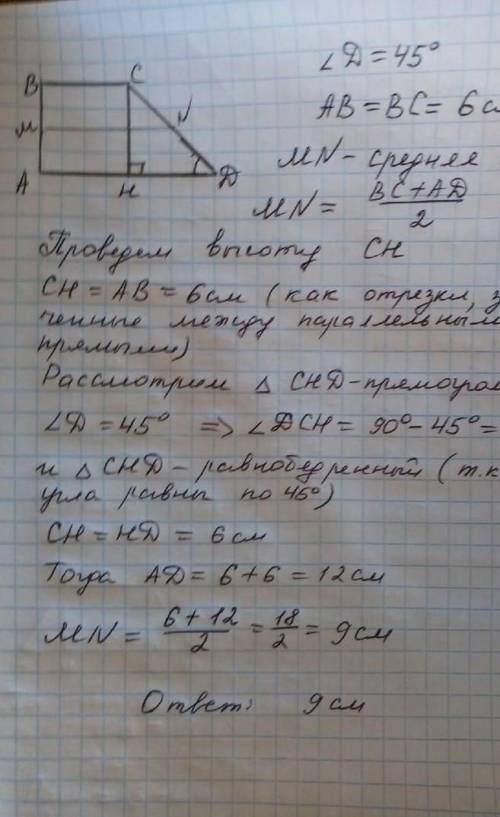 ∠D = 45°
AB = BC = 6 с
B C
M N
A H D
MN – средняя
MN = (BC + AD)/2
Проведем высоту CH
CH = AB = 6 см (как отрезки, з
ченные между параллельным
прямыми)
Рассмотрим △ CHD – прямоуго
∠D = 45° => ∠DCH = 90° – 45° =
и △ CHD – равнобедренный (т.к
угла равны по 45°)
CH = HD = 6 см
Тогда AD = 6 + 6 = 12 см
MN = (6 + 12)/2 = 18/2 = 9 см
Ответ: 9 см